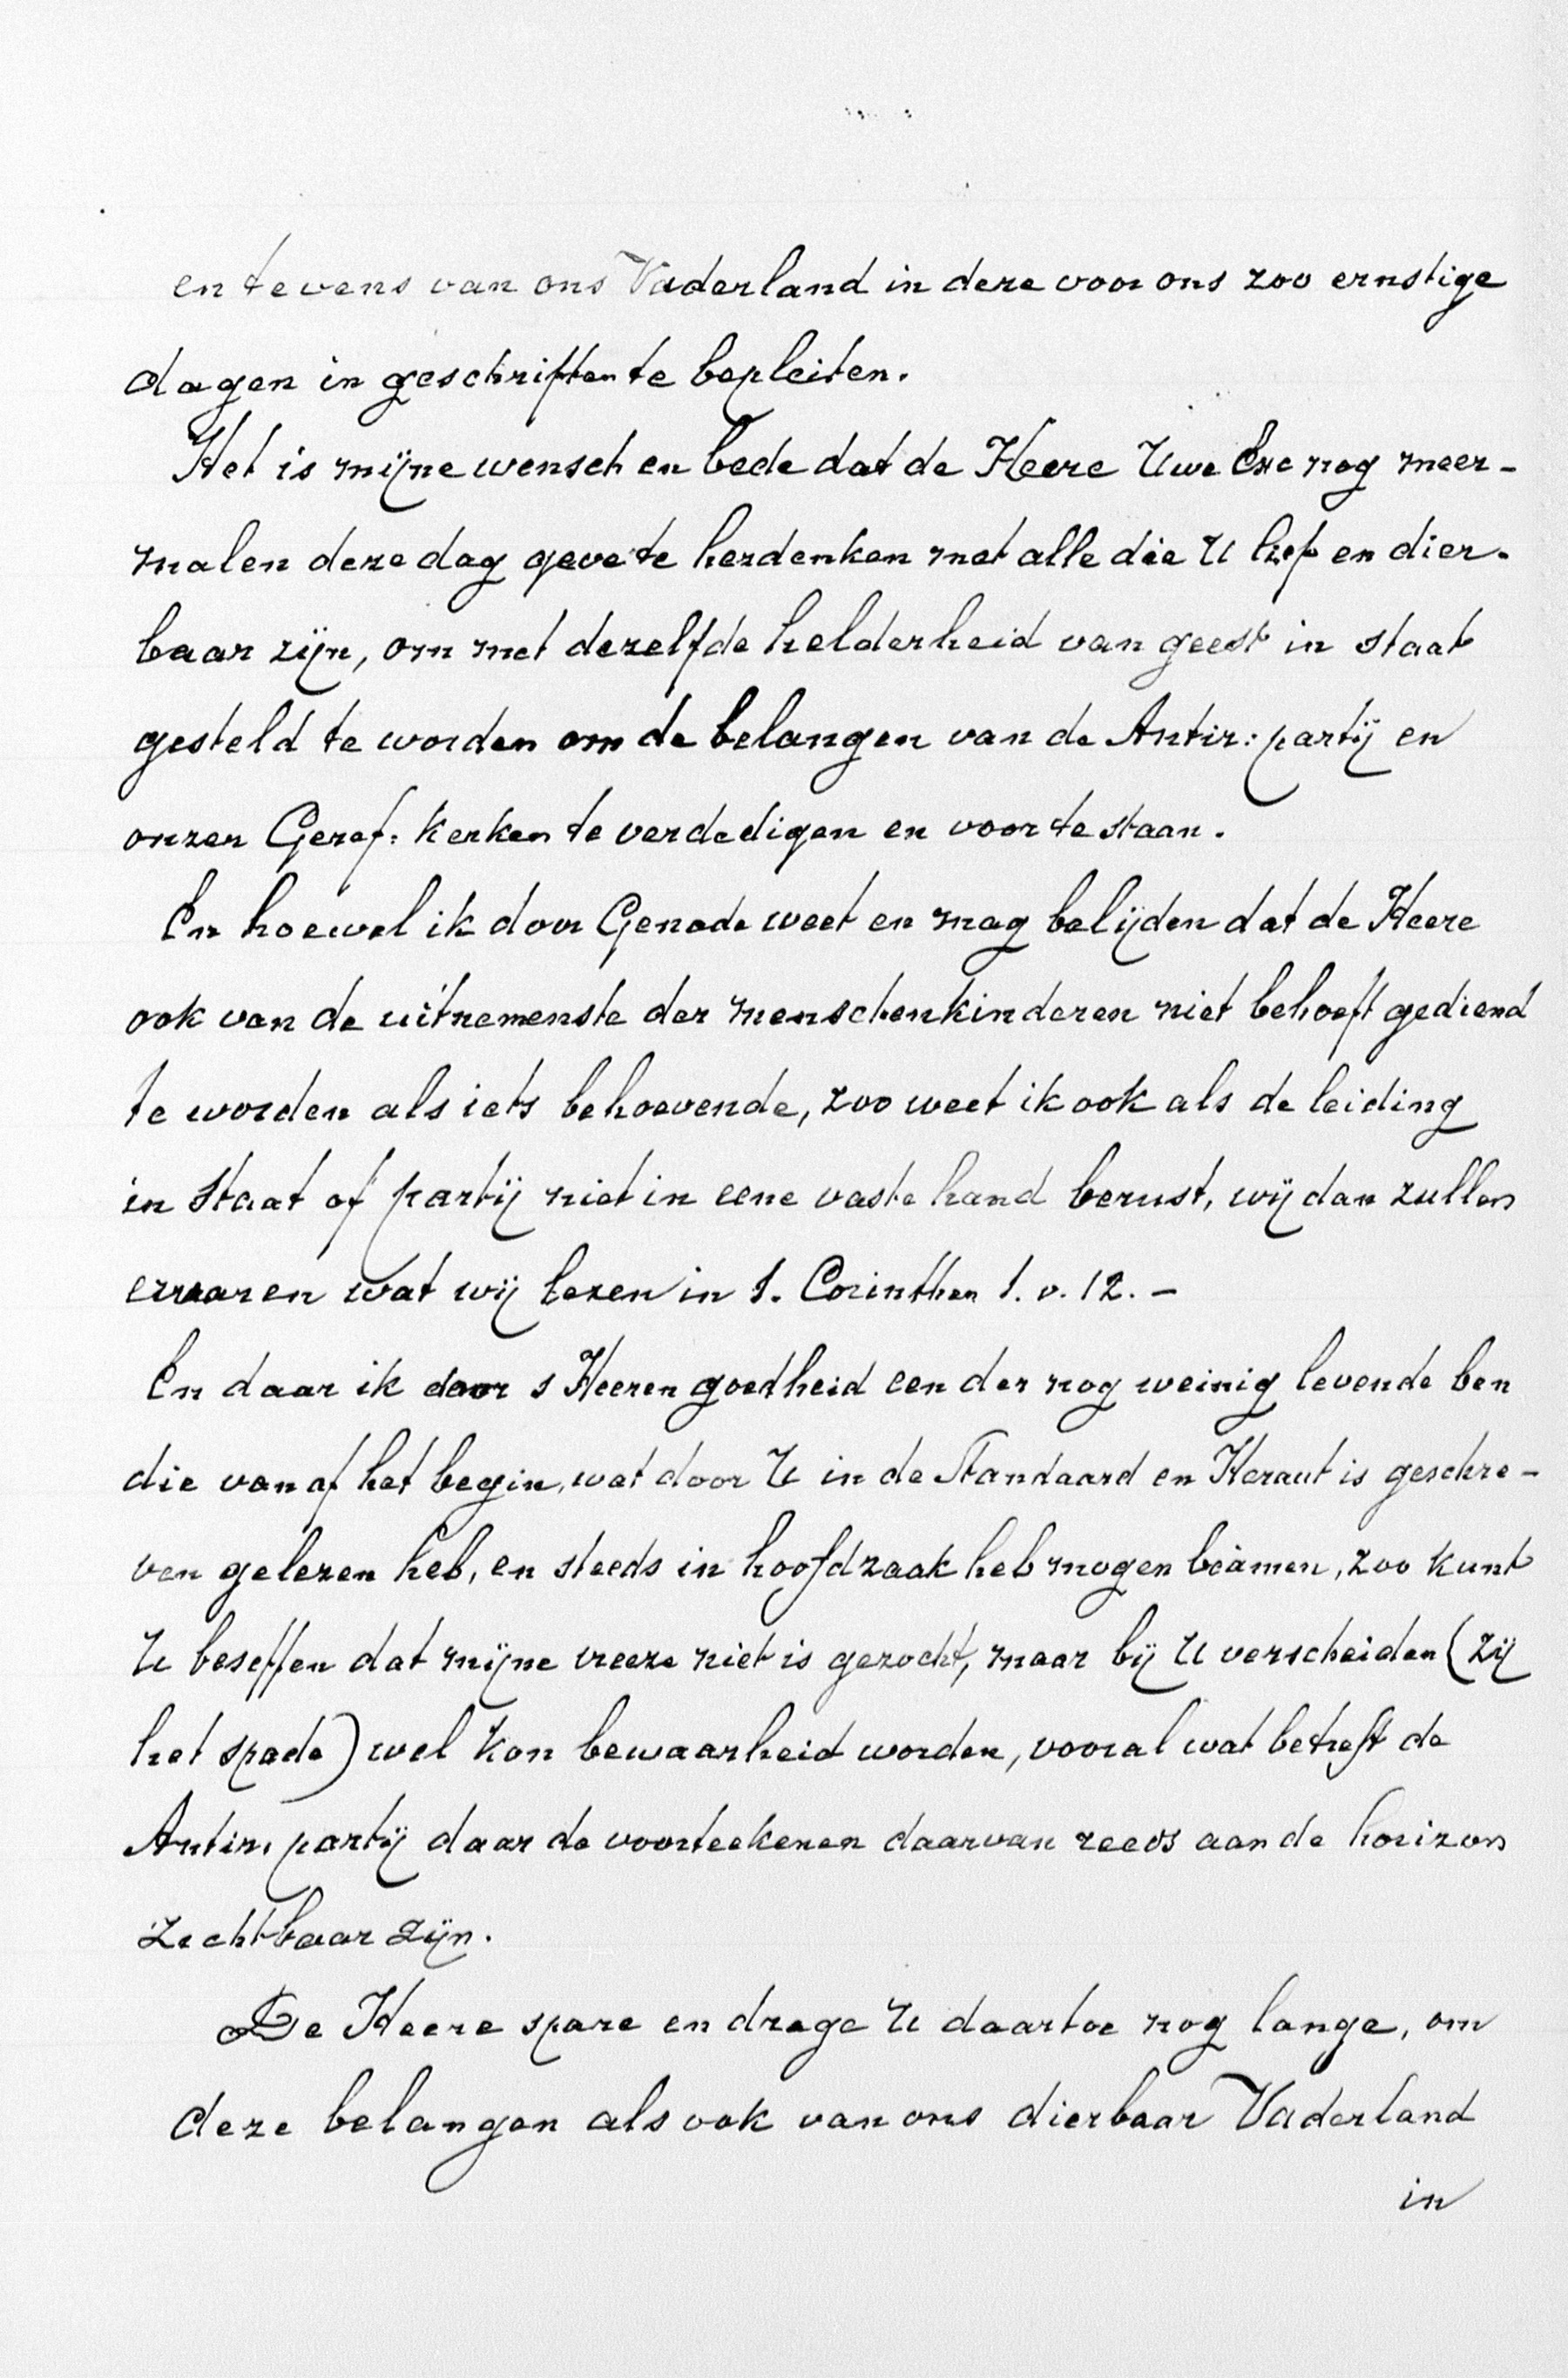 en tevens van ons Vaderland in deze voor ons zoo ernstige
dagen in geschriften te bepleiten.
Het is mijne wensch en bede dat de Heere Uwe Exc nog meer-
malen deze dag geve te herdenken met alle die U lief en dier-
baar zijn, om met dezelfde helderheid van geest in staat
gesteld te worden om de belangen van de Antir: partij en
onzen Geref: Kerken te verdedigen en voor te staan.
En hoewel ik door Genade weet en mag belijden dat de Heere
ook van de uitnemenste der menschenkinderen niet behoeft gediend
te worden als iets behoevende, zoo weet ik ook als de leiding
in Staat of partij niet in eene vaste hand berust, wij dan zullen
ervaren wat wij lezen in 1. Corinthen 1. v. 12. -
En daar ik door s Heeren goedheid een der nog weinig levende ben
die van af het begin, wat door U in de Standaard en Heraut is geschre-
ven gelezen heb, en steeds in hoofdzaak heb mogen beämen, zoo kunt
U beseffen dat mijne vreeze niet is gezocht, maar bij U verscheiden (zij
het spade) wel kon bewaarheid worden, vooral wat betreft de
Antir. partij daar de voorteekenen daarvan reeds aan de horizon
zichtbaar zijn.
De Heere spare en drage U daartoe nog lange, om
deze belangen als ook van ons dierbaar Vaderland
in